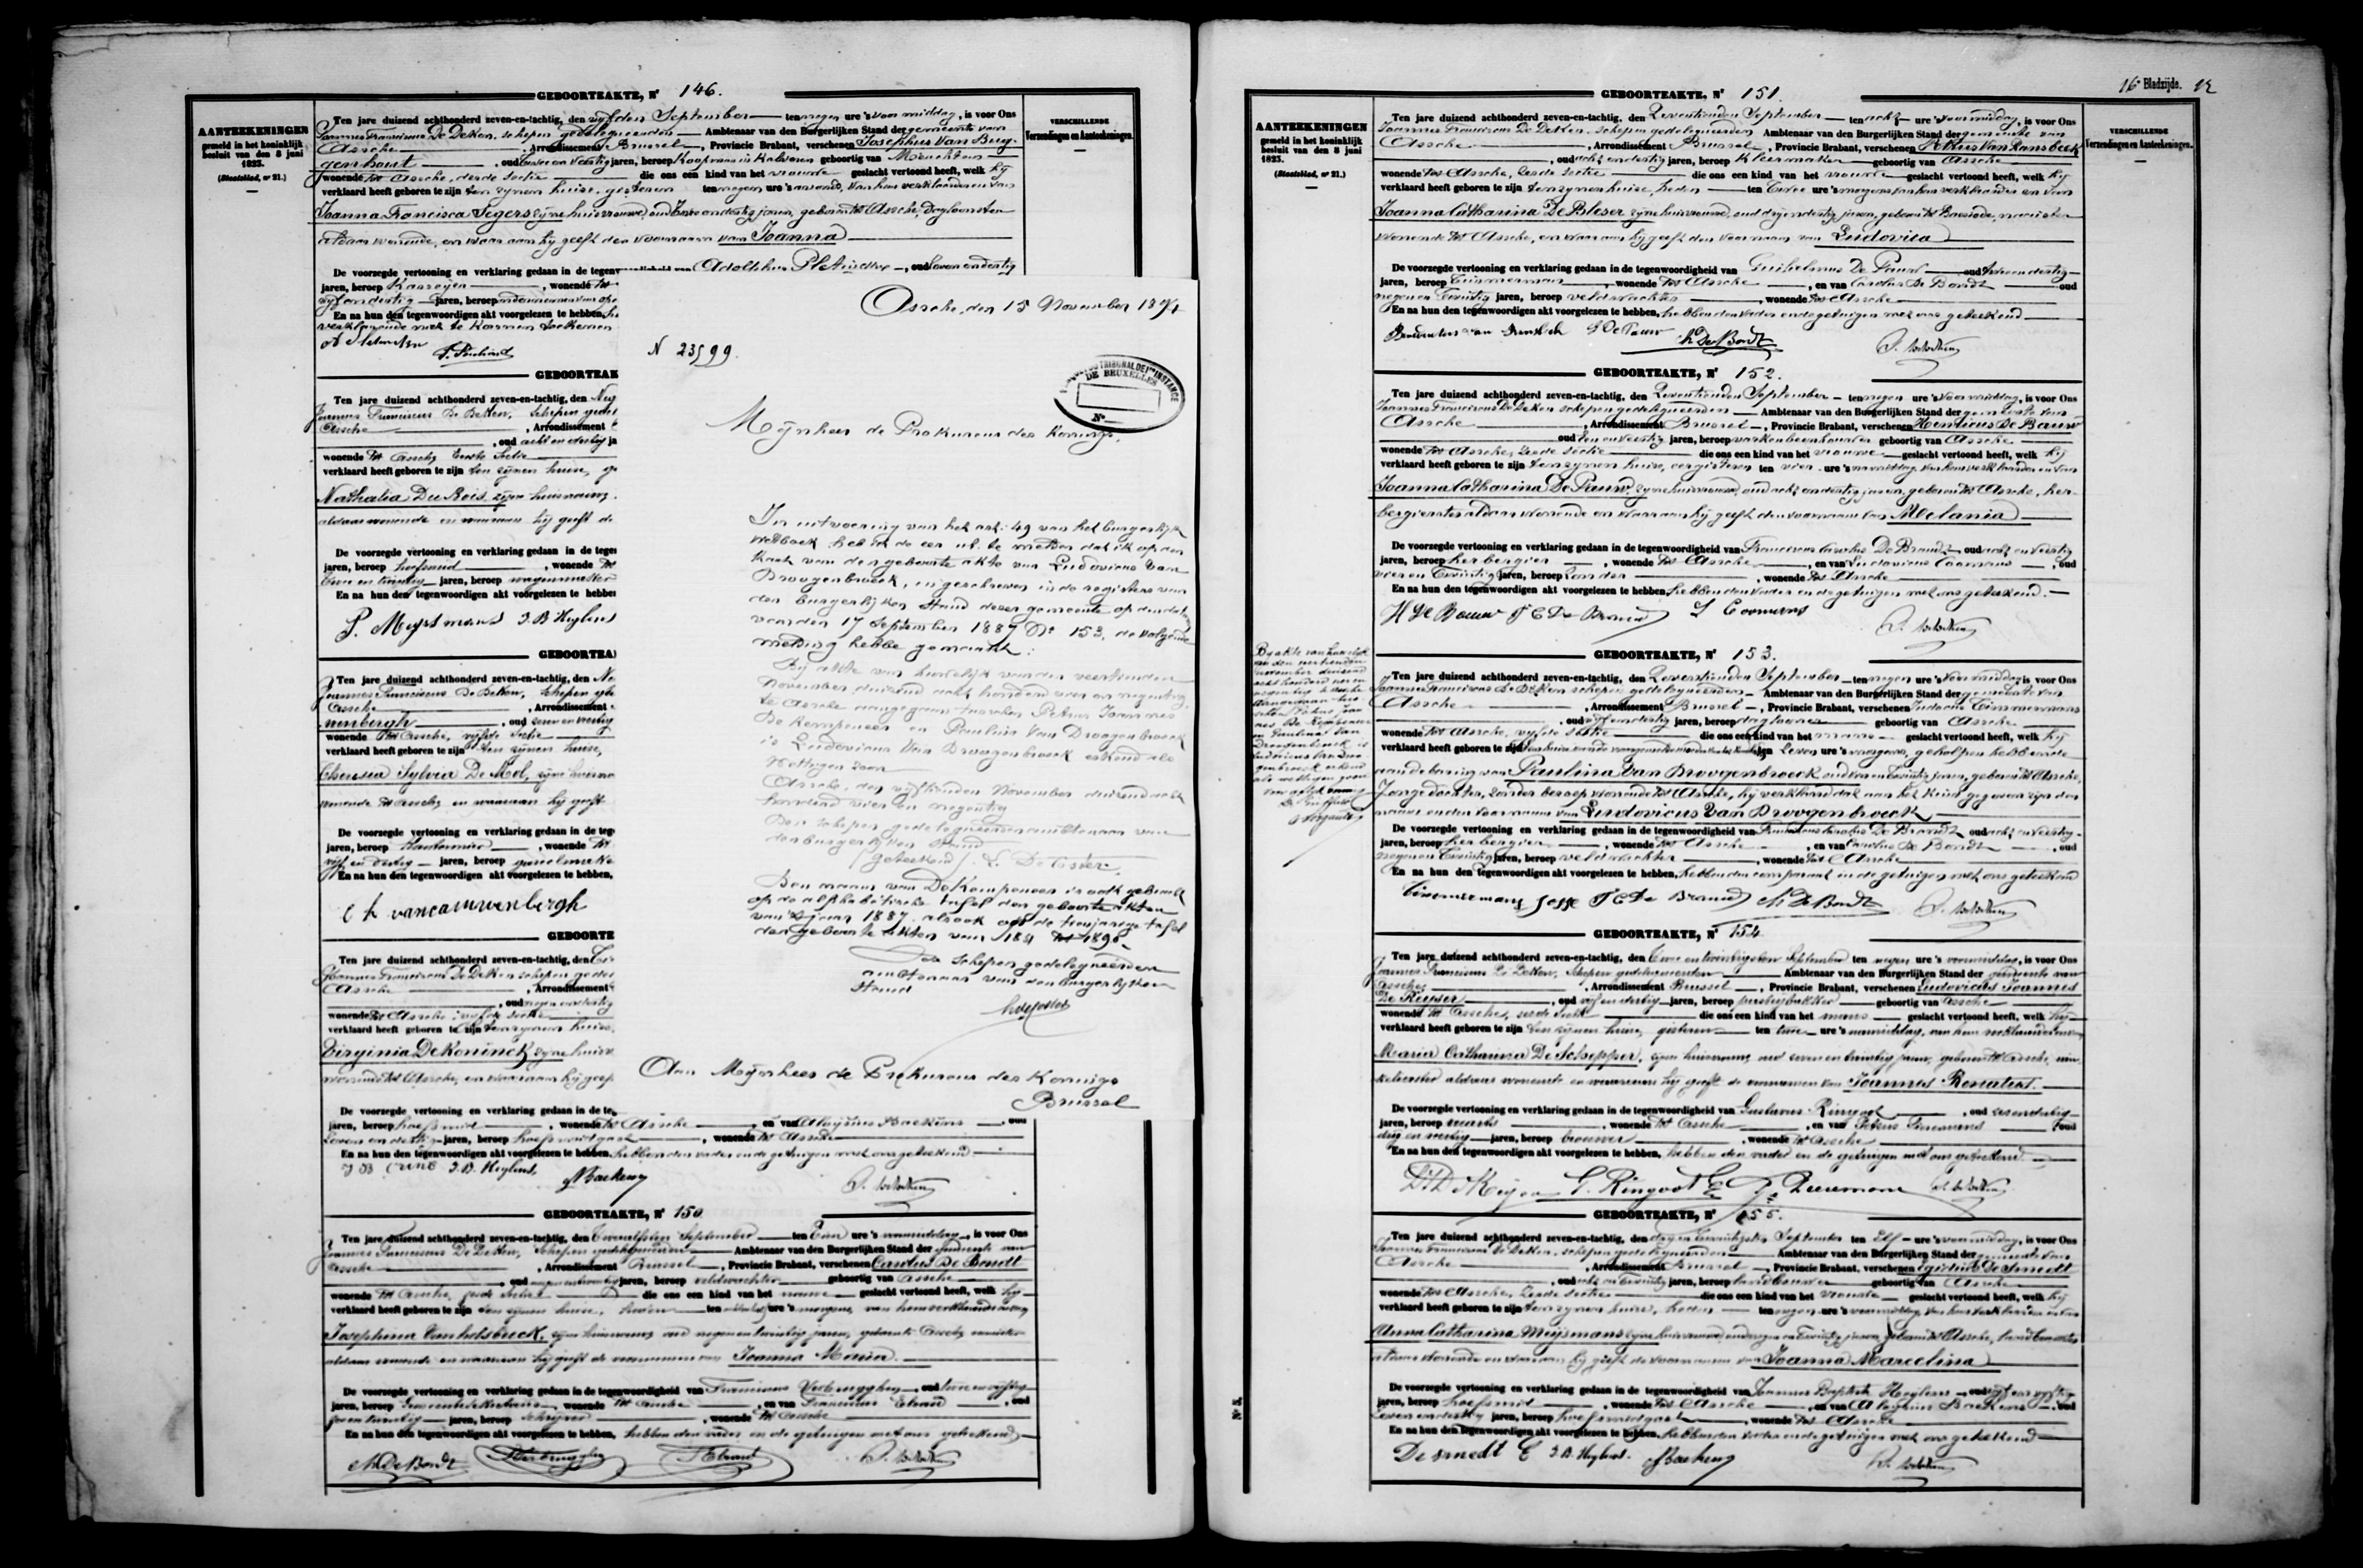 GEBOORTEAKTE, N^r 146.
AANTEEKENINGEN
gemeld in het koninklijk
besluit van den 8 juni
1823.
(Staatsblad, n^r 21.)
VERSCHILLENDE
Verzendingen en Aanteekeningen.
Ten jare duizend achthonderd zeven-en-tachtig, den vijfden September ten negen ure 's voor middag, is voor Ons
Joannes Franciscus De Deken, schepen gedelegueerden Ambtenaar van den Burgerlijken Stand der gemeente van
Assche, Arrondissement Brussel, Provincie Brabant, verschenen Josephus Van Bug-
genhout, oud jaren, beroep Koopman in Kalveren geboortig van Merchtem
wonende tot Assche, derde sectie die ons een kind van het vrouwe geslacht vertoond heeft, welk hij
verklaard heeft geboren te zijn ten zijnen huize, gisteren ten negen ure 's avonds, van hem verklaarder en van
Joanna Francisca Segers zijne huisvrouwe, oud jaren, geboren tot Assche
aldaar wonende, en waar aan hij geeft den voornaam van Joanna
De voorzegde vertooning en verklaring gedaan in de tegen van Adolphus
jaren, beroep, wonende tot
jaren, beroep
En na hun den tegenwoordigen akt voorgelezen te hebben,
GEBOORTEAK
Ten jare duizend achthonderd zeven-en-tachtig, den Neg
Joannes Franciscus De Deken, schepen gedel
Assche, Arrondissement
, oud acht en dertig ja
wonende tot Assche, Eerste Sectie
verklaard heeft geboren te zijn ten zijnen huize, g
Nathalia Du Bois, zijne huisvrouwe
aldaar wonende en waaraan hij geeft de
De voorzegde vertooning en verklaring gedaan in de tege
jaren, beroep hoefsmid, wonende tot
Twee en twintig jaren, beroep wagenmaker
En na hun den tegenwoordigen akt voorgelezen te hebbe
P. Meysmans J. B. Heylens
GEBOORTEA
Ten jare duizend achthonderd zeven-en-tachtig, den Ne
Joannes Franciscus De Deken, schepen gede
Assche, Arrondissement
wenbergh, oud zeven en veertig
wonende tot Assche, vijfde Sectie
verklaard heeft geboren te zijn ten zijnen huize,
Theresia Sylvia De Mol, zijne huisvro
wonende tot Assche en waaraan hij geeft
De voorzegde vertooning en verklaring gedaan in de teg
jaren, beroep, wonende tot
vijf en dertig jaren, beroep
En na hun den tegenwoordigen akt voorgelezen te hebben,
vancauwenbergh
GEBOORTE
Ten jare duizend achthonderd zeven-en-tachtig, den
Joannes Franciscus De Deken schepen gedel
Assche, Arrondissement
, oud negen en dertig
wonende tot Assche, vijfde sectie
verklaard heeft geboren te zijn ten zijnen huize,
Virginia De Koninck zijne huisv
wonende tot Assche, en waaraan hij geef
De voorzegde vertooning en verklaring gedaan in de te
jaren, beroep hoefsmid, wonende tot Assche, en van Aloysius Baekens, oud
Zeven en dertig jaren, beroep hoefsmidgast, wonende tot Assche
En na hun den tegenwoordigen akt voorgelezen te hebben, hebben den vader en de getuigen met ons geteekend
J. B. Heylens Baekens
Assche, den 15 November 1894
N 23599.
TRIBUNAL DE 1^re INSTANCE
DE BRUXELLES
N^o
Mijnheer de Prokureur des Konings,
In uitvoering van het art. 49 van het burgerlijk
wetboek, heb ik de eer u te melden dat ik op den
kant van de geboorte akte van Ludovicus Van
Droogenbroeck, ingeschreven in de registers van
den burgerlijken stand dezer gemeente op den datum
van den 17 September 1887 N^r 153, de volgende
melding hebbe gemaakt:
Bij akte van huwelijk van den veertienden
November duizend acht honderd vier en negentig
te Assche aangegaan tusschen Petrus Joannes
De Kempeneer en Paulina Van Droogenbroeck
is Ludovicus Van Droogenbroeck erkend als
wettigen zoon
Assche, den vijftienden November duizend acht
honderd vier en negentig
Den schepen gedelegueerden ambtenaar van
den burgerlijken stand
(geteekend)
Den naam van De Kempeneer is ook gebracht
op de alphabetische tafel der geboorte akten
van 't jaar 1887 alsook op de tienjarige tafel
der geboorte akten van 1881 tot 1890
De schepen gedelegueerden
ambtenaar van den burgerlijken
stand
Aan Mijnheer de Prokureur des Konings
Brussel
GEBOORTEAKTE, N^r 150
Ten jare duizend achthonderd zeven-en-tachtig, den Twaalfsten September ten Een ure 's namiddag, is voor Ons
Joannes Franciscus De Deken, schepen gedelegueerden Ambtenaar van den Burgerlijken Stand der gemeente van
Assche, Arrondissement Brussel, Provincie Brabant, verschenen Carolus De Bondt
, oud negen en twintig jaren, beroep veldwachter geboortig van Assche
wonende tot Assche, zesde sectie die ons een kind van het vrouwe geslacht vertoond heeft, welk hij
verklaard heeft geboren te zijn ten zijnen huize, heden ten ure 's morgens, van hem verklaarder en van
Josephina Vanholsbeeck, zijne huisvrouwe, oud negen en twintig jaren, geboren te Assche, naaister
aldaar wonende en waaraan hij geeft de voornamen van Joanna Maria.
De voorzegde vertooning en verklaring gedaan in de tegenwoordigheid van Franciscus Verbrugghen, oud
jaren, beroep Gemeentesekretaris, wonende tot Assche, en van Franciscus, oud
jaren, beroep Schrijver, wonende tot Assche
En na hun den tegenwoordigen akt voorgelezen te hebben, hebben den vader en de getuigen met ons geteekend
De Bondt Verbrugghen
16^e Bladzijde.
GEBOORTEAKTE, N^r 151.
AANTEEKENINGEN
gemeld in het koninklijk
besluit van den 8 juni
1823.
(Staatsblad, n^r 21.)
VERSCHILLENDE
Verzendingen en Aanteekeningen.
Ten jare duizend achthonderd zeven-en-tachtig, den Zeventienden September ten acht ure 's voormiddag, is voor Ons
Joannes Franciscus De Deken, schepen gedelegueerden Ambtenaar van den Burgerlijken Stand der gemeente van
Assche, Arrondissement Brussel, Provincie Brabant, verschenen Petrus Van Ransbeek
, oud acht en dertig jaren, beroep Kleermaker geboortig van Assche
wonende tot Assche, Zesde sectie die ons een kind van het vrouwe geslacht vertoond heeft, welk hij
verklaard heeft geboren te zijn ten zijnen huize, heden ten Twee ure 's morgens van hem verklaarder en van
Joanna Catharina De Bleser zijne huisvrouwe, oud drij en dertig jaren, geboren tot Baesrode, naaister
wonende tot Assche, en waaraan hij geeft den voornaam van Ludovica
De voorzegde vertooning en verklaring gedaan in de tegenwoordigheid van Guilielmus De Pauw oud twee en dertig
jaren, beroep Timmerman, wonende tot Assche, en van Carolus De Bondt oud
negen en Twintig jaren, beroep veldwachter, wonende tot Assche
En na hun den tegenwoordigen akt voorgelezen te hebben, hebben den vader en de getuigen met ons geteekend
De Pauw De Bondt
GEBOORTEAKTE, N^r 152.
Ten jare duizend achthonderd zeven-en-tachtig, den Zeventienden September ten negen ure 's voormiddag, is voor Ons
Joannes Franciscus De Deken schepen gedelegueerden Ambtenaar van den Burgerlijken Stand der gemeente van
Assche, Arrondissement Brussel, Provincie Brabant, verschenen Henricus De Bauw
oud een en veertig jaren, beroep varkenbeenhouder geboortig van Assche
wonende tot Assche, Zesde sectie die ons een kind van het vrouwe geslacht vertoond heeft, welk hij
verklaard heeft geboren te zijn ten zijnen huize, eergisteren ten vier ure 's namiddag van hem verklaarder en van
Joanna Catharina De Pauw, zijne huisvrouwe, oud acht en dertig jaren, geboren tot Assche, her-
bergierster aldaar wonende en waaraan hij geeft den voornaam van Melania
De voorzegde vertooning en verklaring gedaan in de tegenwoordigheid van Franciscus Carolus De Brandt oud acht en veertig
jaren, beroep herbergier, wonende tot Assche, en van Ludovicus Coomans, oud
vier en Twintig jaren, beroep, wonende tot Assche
En na hun den tegenwoordigen akt voorgelezen te hebben, hebben den vader en de getuigen met ons geteekend.
H De Bauw F C De Brandt L Coomans
GEBOORTEAKTE, N^r 153.
Bij akte van huwelijk
van den veertienden
november duizend
acht honderd vier en
negentig te Assche
aangegaan tus
schen Petrus Joan
nes De Kempeneer
en Paulina Van
Droogenbroeck is
Ludovicus Van Droo
genbroeck erkend
als wettigen zoon
Ten jare duizend achthonderd zeven-en-tachtig, den Zeventienden September ten negen ure 's voormiddag is voor Ons
Joannes Franciscus De Deken schepen gedelegueerden Ambtenaar van den Burgerlijken Stand der gemeente van
Assche, Arrondissement Brussel, Provincie Brabant, verschenen Judocus Timmermans
, oud vijf en dertig jaren, beroep dagloner geboortig van Assche
wonende tot Assche, vijfde sectie die ons een kind van het mans geslacht vertoond heeft, welk hij
verklaard heeft geboren te zijn ten Zeven ure 's morgens, geholpen hebbende
aan de baring van Paulina Van Droogenbroeck oud en Twintig jaren, geboren tot Assche,
Jonge dochter, zonder beroep wonende tot Assche, hij verklaard dat aan het kind gegeven zijn den
naam en den voornaam van Ludovicus Van Droogenbroeck
De voorzegde vertooning en verklaring gedaan in de tegenwoordigheid van Franciscus Carolus De Brandt oud acht en veertig
jaren, beroep herbergier, wonende tot Assche, en van Carolus De Bondt, oud
negen en Twintig jaren, beroep veldwachter, wonende tot Assche
En na hun den tegenwoordigen akt voorgelezen te hebben, hebben den comparant en de getuigen met ons geteekend
Timmermans Josse F C De Brandt De Bondt
GEBOORTEAKTE, N^r 154
Ten jare duizend achthonderd zeven-en-tachtig, den Twee en twintigsten September ten negen ure 's voormiddag, is voor Ons
Joannes Franciscus De Deken, Schepen gedelegueerden Ambtenaar van den Burgerlijken Stand der gemeente van
Assche, Arrondissement Brussel, Provincie Brabant, verschenen Ludovicus Joannes
De Keyser, oud vijf en dertig jaren, beroep geboortig van Assche
wonende tot Assche, zesde sectie die ons een kind van het mans geslacht vertoond heeft, welk hij
verklaard heeft geboren te zijn ten zijnen huize, gisteren ten twee ure 's namiddag, van hem verklaarder en van
Maria Catharina De Schepper, zijne huisvrouwe, oud zeven en twintig jaren, geboren tot Assche, win-
kelierster aldaar wonende en waaraan hij geeft de voornamen van Joannes Renatus.
De voorzegde vertooning en verklaring gedaan in de tegenwoordigheid van Gustavus Ringoot, oud zes en dertig
jaren, beroep, wonende tot Assche, en van Petrus, oud
drij en veertig jaren, beroep brouwer, wonende tot Assche
En na hun den tegenwoordigen akt voorgelezen te hebben, hebben den vader en de getuigen met ons geteekend
G. Ringoot
GEBOORTEAKTE, N^r 155.
Ten jare duizend achthonderd zeven-en-tachtig, den drij en Twintigsten September ten Elf ure 's voormiddag, is voor Ons
Joannes Franciscus De Deken, schepen gedelegueerden Ambtenaar van den Burgerlijken Stand der gemeente van
Assche, Arrondissement Brussel, Provincie Brabant, verschenen Egidius De Smedt
, oud acht en Twintig jaren, beroep landbouwer geboortig van Assche
wonende tot Assche, Zesde sectie die ons een kind van het vrouwe geslacht vertoond heeft, welk hij
verklaard heeft geboren te zijn ten zijnen huize, heden ten negen ure 's voormiddag, van hem verklaarder en van
Anna Catharina Meysmans zijne huisvrouwe, oud negen en Twintig jaren, geboren tot Assche, landbouwster
aldaar wonende en waaraan hij geeft de voornamen van Joanna Marcelina
De voorzegde vertooning en verklaring gedaan in de tegenwoordigheid van Joannes Baptista Heylens, oud vijf en vijftig
jaren, beroep hoefsmid, wonende tot Assche, en van Aloysius Baekens, oud
Zeven en dertig jaren, beroep hoefsmidgast, wonende tot Assche
En na hun den tegenwoordigen akt voorgelezen te hebben, hebben den vader en de getuigen met ons geteekend
De Smedt E J. B. Heylens. Baekens
N^r 5.